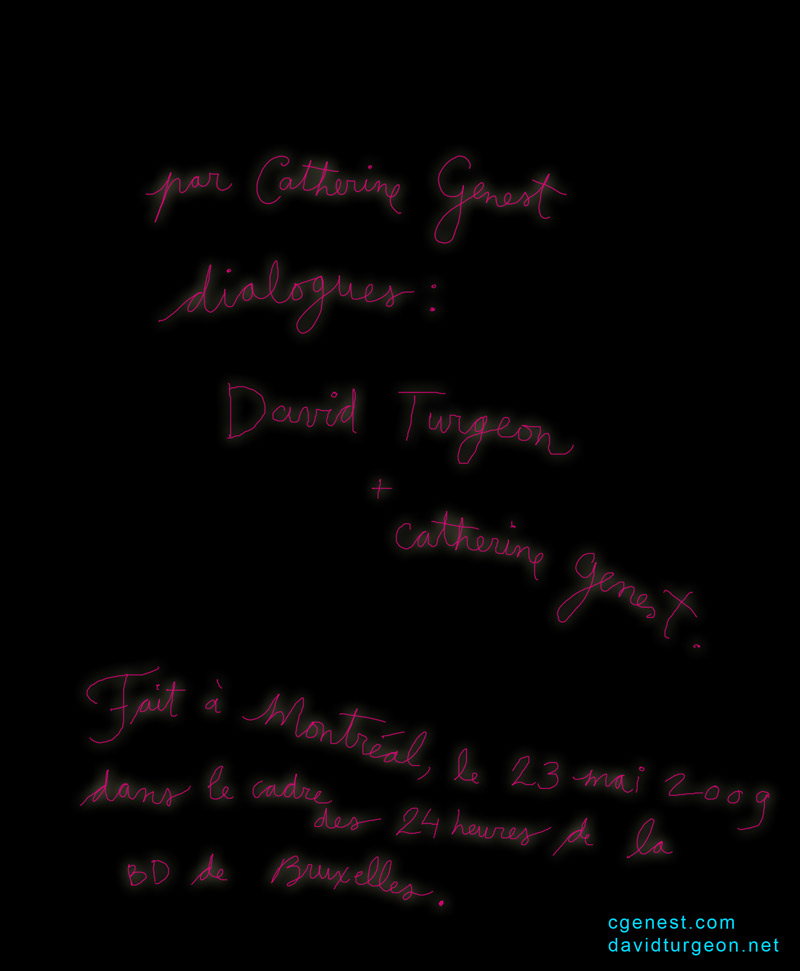 par Catherine Genest
dialogues :
David Turgeon
+
catherine genest.
Fait à Montréal, le 23 mai 2009
dans le cadre
des 24 heures de la
BD de Bruxelles.
cgenest.com
davidturgeon.net